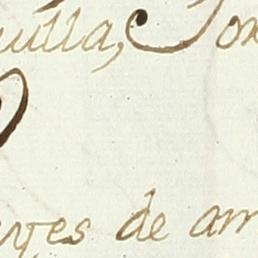 uilla, Jos
yes de arm